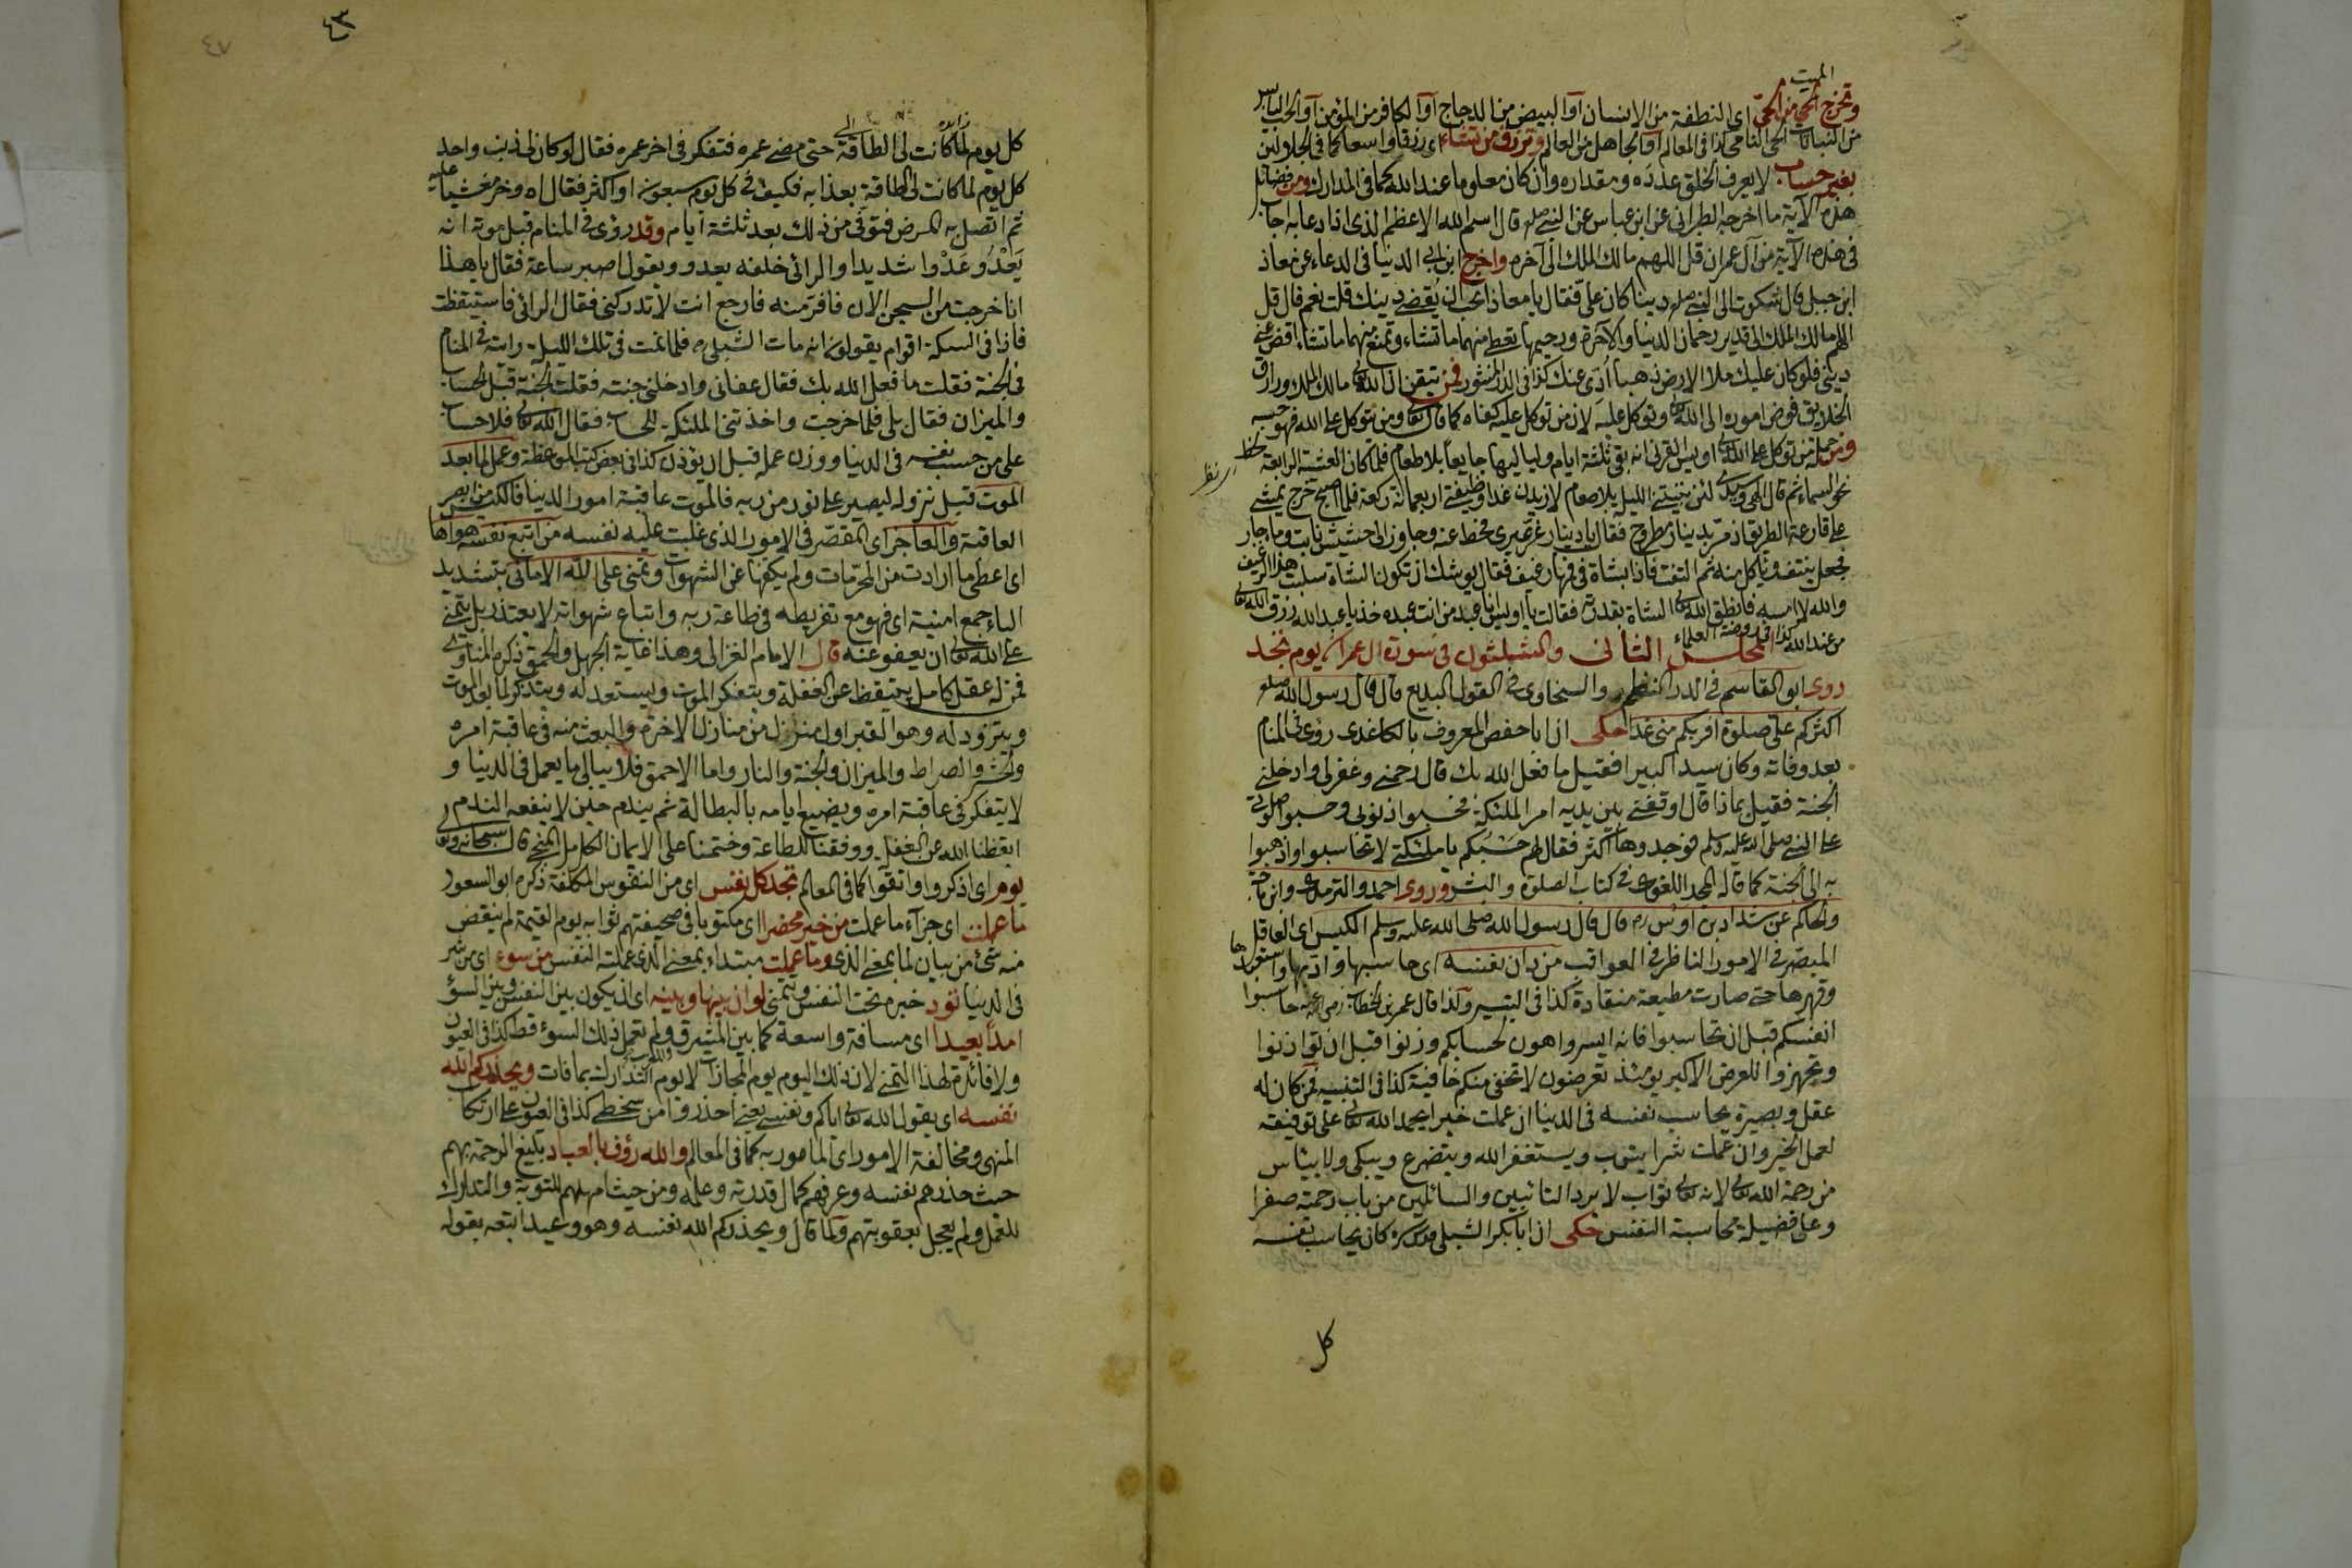 الميت
وتخرج الحى من الحى اى النطفة من الانسان او البيض من الدجاج او الكافر من المؤمن او الحب اليابس
من النبات الحى النامى كذا فى المعالم او الجاهل من العالم وترزق من تشاء اى رزقا واسعا كما فى الجلالين
بغير حساب لا يعرف الخلق عدده ومقداره وان كان معلوما عند الله كما فى المدارك ومن فضائل
هذه الآية ما اخرجه الطبرانى عن ابن عباس عن النبى صلعم قال اسم الله الاعظم الذى اذا دعا به اجاب
فى هذه الآية من آل عمران قل اللهم مالك الملك الى آخره واخرج ابن ابى الدنيا فى الدعاء عن معاذ
ابن جبل قال شكوت الى النبى صلعم دينا كان على فقال يا معاذ اتحب ان يقضى دينك قلت نعم قال قل
اللهم مالك الملك الى قدير رحمان الدنيا والآخرة ورحيمهما تعطى منهما ما تشاء وتمنع منهما ما تشاء اقض عنى
دينى فلو كان عليك ملأ الارض ذهبا أدى عنك كذا فى الدر المنثور فمن تيقن ان الله تعالى مالك الملك ورازق
الخلايق فوض اموره الى الله تعالى وتوكل عليه لان من توكل عليه كفاه كما قال تعالى ومن يتوكل على الله فهو حسبه
ومن جملة من توكل على الله تعالى اويس القرنى انه بقى ثلثة ايام ولياليها جايعا بلا طعام فلما كان العشية الرابعة نظر
نحو السماء ثم قال الهى وسيدى لئن بيتنى الليل بلا طعام لازيدن غدا وظيفتى اربعمائة ركعة فلما اصبح خرج يمشى
على قارعة الطريق اذ مر بدينار مطروح فقال يا دينار غر غيرى فخط عنه وجاوز الى حشيش نابت وماء جار
فجعل ينتف ويأكل منه ثم التفت فاذا بشاة فى فمها رغيف فقال يوشك ان تكون الشاة سلبت هذا الرغيف
والله لا امسه فانطق الله تعالى الشاة بقدرته فقالت يا اويس انا عبد من انت عبده خذ يا عبد الله رزق الله تعالى
من عند الله كذا فى روضة العلماء المجلس الثانى والثلثون فى سورة ال عمران يوم تجد
روى ابو القاسم فى الدر المنظم والسخاوى فى القول البديع قال قال رسول الله صلعم
اكثركم على صلوة اقربكم منى غدا حكى ان ابا حفص المعروف بالكاغدى روى فى المنام
بعد وفاته وكان سيدا كبيرا فقيل ما فعل الله بك قال رحمنى وغفر لى وادخلنى
الجنة فقيل بماذا قال اوقفنى بين يديه امر الملئكة فحسبوا ذنوبى وحسبوا صلوتى
على النبى صلى الله عليه وسلم فوجدوها اكثر فقال لهم حسبكم يا ملئكتى لا تحاسبوا واذهبوا
به الى الجنة كما قاله المجد اللغوى فى كتاب الصلوة والبشر وروى احمد والترمذى وابن ماجه
والحاكم عن شداد بن اوس رضه قال قال رسول الله صلى الله عليه وسلم الكيس اى العاقل
المبصر فى الامور الناظر فى العواقب من دان نفسه اى حاسبها وادبها واستعبدها
وقهرها حتى صارت مطيعة منقادة كذا فى التيسير وكذا قال عمر بن الخطاب رضى الله عنه حاسبوا
انفسكم قبل ان تحاسبوا فانه ايسر واهون لحسابكم وزنوا قبل ان توازنوا
وتجهزوا للعرض الاكبر يومئذ تعرضون لا تخفى منكم خافية كذا فى التنبيه فمن كان له
عقل وبصيرة يحاسب نفسه فى الدنيا ان عملت خيرا يحمد الله تعالى على توفيقه
لعمل الخير وان عملت شرا يتوب ويستغفر الله ويتضرع ويبكى ولا ييئاس
من رحمة الله تعالى لانه تعالى تواب لا يرد التائبين والسائلين من باب رحمته صفرا
وعلى فضيلة محاسبة النفس حكى ان ابا بكر الشبلى قدس سره كان يحاسب نفسه
كل
٤٣
٤٧
كل يوم لما كانت لى الطاقة حتى مضى عمره فتفكر فى اخر عمره فقال لو كان لى ذنب واحد
كل يوم لما كانت لى الطاقة بعذابه فكيف فى كل يوم سبعون او اكثر فقال اه وخر مغشيا عليه
ثم اتصل به المرض فتوفى من ذلك بعد ثلثة ايام وقد روى فى المنام قبل موته انه
يعدو عدوا شديدا والرائى خلفه يعدو ويقول اصبر ساعة فقال يا هذا
انا خرجت من السجن الان فافر منه فارجع انت لا تدركنى فقال الرائى فاستيقظت
فاذا فى السكة اقوام يقولون انه مات الشبلى ره فلما نمت فى تلك الليلة رايته فى المنام
فى الجنة فقلت ما فعل الله بك فقال عفانى وادخلنى جنته فقلت الجنة قبل الحساب
والميزان فقال بلى فلما خرجت واخذتنى الملئكة للحساب فقال الله تعالى فلا حساب
على من حسب نفسه فى الدنيا ووزن عمله قبل ان يوزن كذا فى بعض كتب الموعظة وعمل لما بعد
الموت قبل نزوله ليصير على نور من ربه فالموت عاقبة امور الدنيا فالكيس من ابصر
العاقبة والعاجز اى المقصر فى الامور الذى غلبت عليه نفسه من اتبع نفسه هواها
اى اعطى ما ارادت من المحرمات ولم يكفها عن الشهوات وتمنى على الله الامانى بتشديد
الياء جمع امنية اى فهو مع تفريطه فى طاعة ربه واتباع شهواته لا يعتذر بل يتمنى
على الله تعالى ان يعفو عنه قال الامام الغزالى وهذا غاية الجهل والحمق ذكره المناوى
فمن له عقل كامل يتيقظ عن الغفلة ويتفكر الموت ويستعد له ويتذكر لما بعد الموت
ويتزود له وهو القبر اول منزل من منازل الاخرة والبعث منه فى عاقبة امره
والحشر والصراط والميزان والجنة والنار واما الاحمق فلا يبالى ما يعمل فى الدنيا و
لا يتفكر فى عاقبة امره ويضيع ايامه بالبطالة ثم يندم حين لا ينفعه الندم
ايقظنا الله عن الغفلة ووفقنا للطاعة وختمنا على الايمان الكامل المنجى قال سبحانه وتعالى
يوم اى اذكروا واتقوا كما فى المعالم تجد كل نفس اى من النفوس المكلفة ذكره ابو السعود
ما عملت اى جزآء ما عملت من خير محضرا اى مكتوبا فى صحيفتهم ثوابه يوم القيمة لم ينقص
منه شئ من بيان لما بمعنى الذى وما عملت مبتداء بمعنى الذى عملته النفس من سوء اى من شر
فى الدنيا تود خبره تحت النفس وتتمنى لو ان بينها وبينه اى ان يكون بين النفس وبين السوء
امدا بعيدا اى مسافة واسعة كما بين المشرق ولم تعمل ذلك السوء قط كذا فى العيون
ولا فائدة لهذا التمنى لان ذلك اليوم يوم المجازات لا يوم التدارك بما فات ويحذركم الله
نفسه اى يقول الله تعالى اياكم ونفسى يعنى احذروا من سخطى كذا فى العيون على ارتكاب
المنهى ومخالفة الامور اى المامور به كما فى المعالم والله رؤف بالعباد بليغ الرحمة بهم
حيث حذرهم نفسه وعرفهم كمال قدرته وعلمه ومن حيث امهلهم للتوبة والتدارك
للعمل ولم يعجل بعقوبتهم ولما قال ويحذركم الله نفسه وهو وعيد اتبعه بقوله